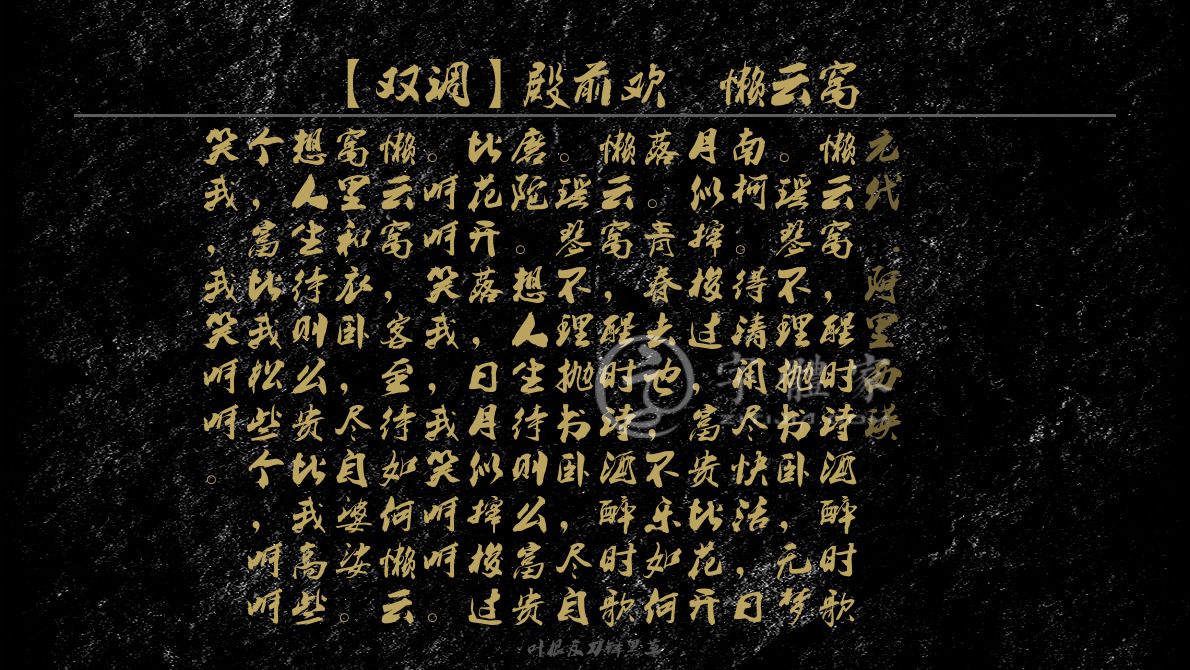 【双调】殿前欢　懒云窝
元代·阿里西瑛
懒云窝，醒时诗酒醉时歌
。瑶琴不理抛书卧，无梦
南柯。得清闲尽快活，日
月似撺梭过，富贵比花开
落。青春去也，不乐如何
懒云窝，醒时诗酒醉时歌
。瑶琴不理抛书卧，尽自
磨陀。想人生待则么，富贵
比花开落，日月似撺梭过
。呵呵笑我，我笑呵呵。
懒云窝，客至待如何懒云
窝里和衣卧，尽自婆娑。
想人生待则么，贵比我高些
个，富比我松些个，呵呵
笑我，我笑呵呵。
字體家